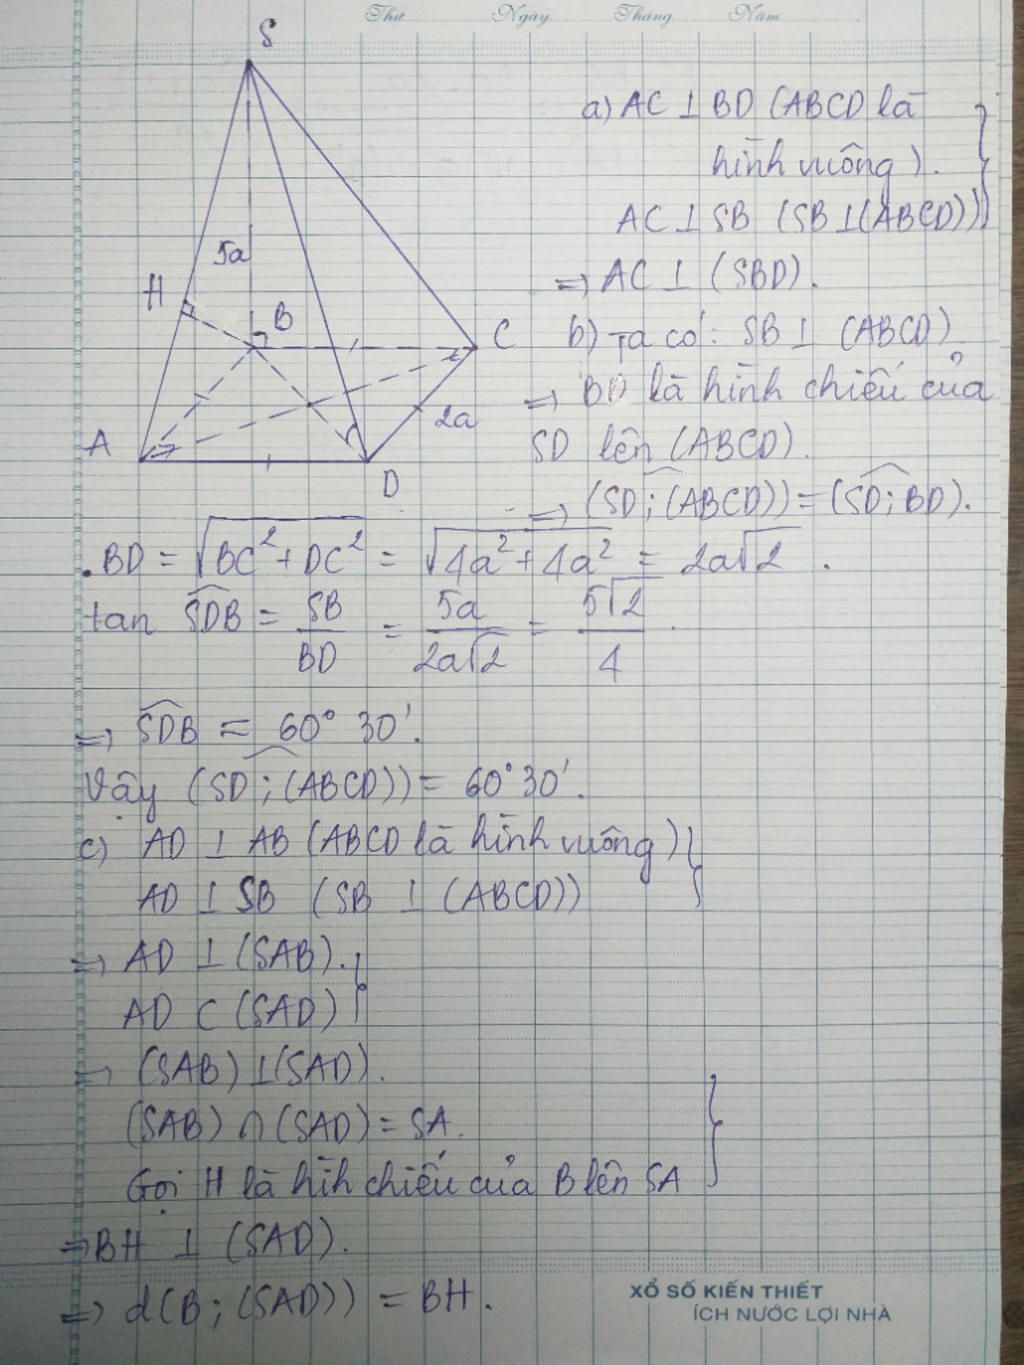 Thứ Ngày Tháng Năm
S
a) AC ⊥ BD (ABCD là
hình vuông).
AC ⊥ SB (SB ⊥ (ABCD))
=> AC ⊥ (SBD).
5a
H
B
C
A
D
2a
b) Ta có: SB ⊥ (ABCD)
=> BD là hình chiếu của
SD lên (ABCD).
=> (SD; (ABCD)) = (SD; BD).
. BD = √(BC² + DC²) = √(4a² + 4a²) = 2a√2 .
tan SDB = SB/BD = 5a/2a√2 = 5√2/4 .
=> SDB ≈ 60° 30'.
Vậy (SD; (ABCD)) = 60° 30'.
c) AD ⊥ AB (ABCD là hình vuông)
AD ⊥ SB (SB ⊥ (ABCD))
=> AD ⊥ (SAB).
AD ⊂ (SAD)
=> (SAB) ⊥ (SAD).
(SAB) ∩ (SAD) = SA.
Gọi H là hìh chiếu của B lên SA
=> BH ⊥ (SAD).
=> d(B; (SAD)) = BH.
XỔ SỐ KIẾN THIẾT
ÍCH NƯỚC LỢI NHÀ